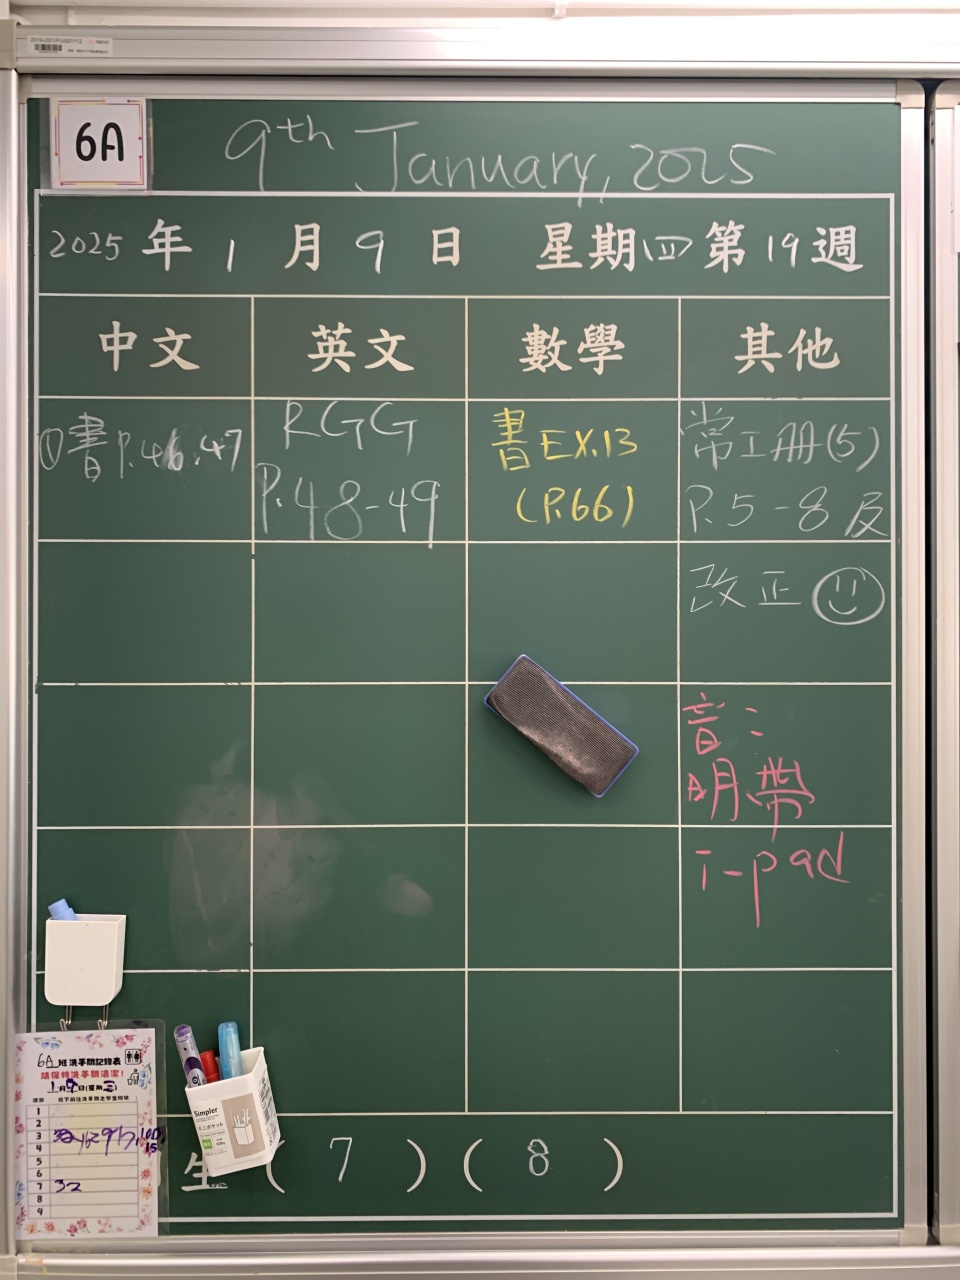 6A
9th January, 2025
2025 年 1 月 9 日 星期四 第 19 週
中文 英文 數學 其他
①書 P.46.47
RGG
P.48-49
書 EX.13
(P.66)
常工冊(5)
P.5-8 及
改正
音:
明帶
i-pad
6A 班洗手間記錄表
請保持洗手間清潔!
1
2
3
4
5
6
7 32
8
9
Simpler
ミニポケット
生 ( 7 ) ( 8 )